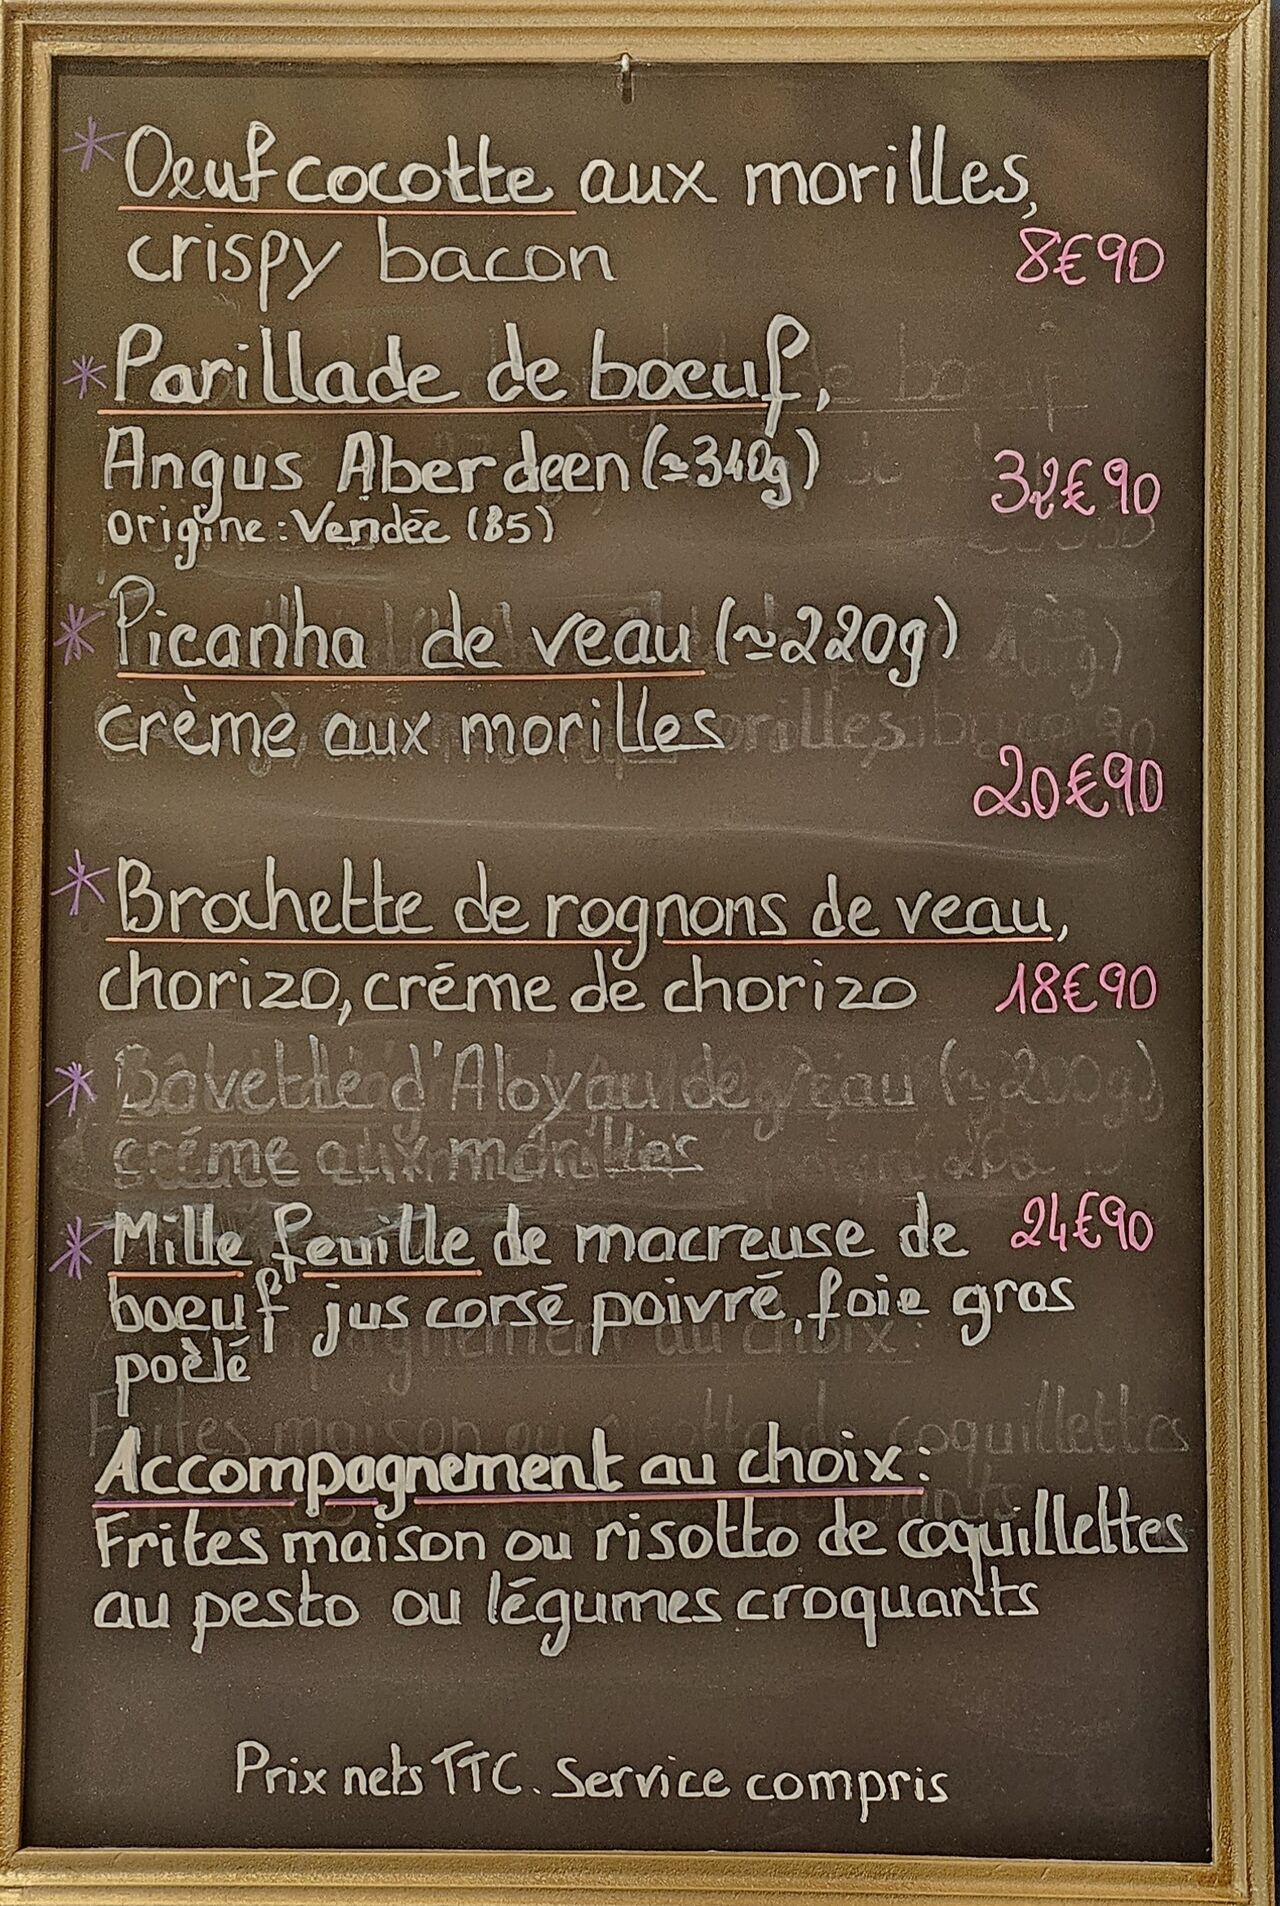 * Oeuf cocotte aux morilles,
crispy bacon 8€90
* Parillade de boeuf,
Angus Aberdeen (≃340g)
32€90
Origine : Vendée (85)
* Picanha de veau (≃220g)
crème aux morilles
20€90
* Brochette de rognons de veau,
chorizo, créme de chorizo 18€90
* Bavette d'Aloyau de veau (≃200g)
créme aux morilles
* Mille feuille de macreuse de 24€90
boeuf jus corsé poivré, foie gras
poèlé
Accompagnement au choix :
Frites maison ou risotto de coquillettes
au pesto ou légumes croquants
Prix nets TTC. Service compris